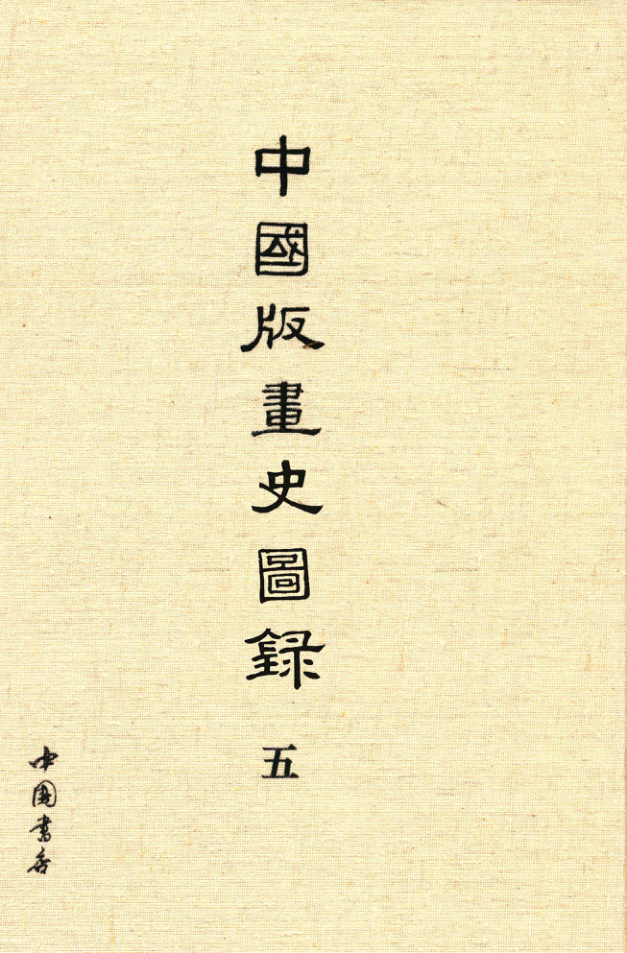 中國版畫史圖録
五
中国书店